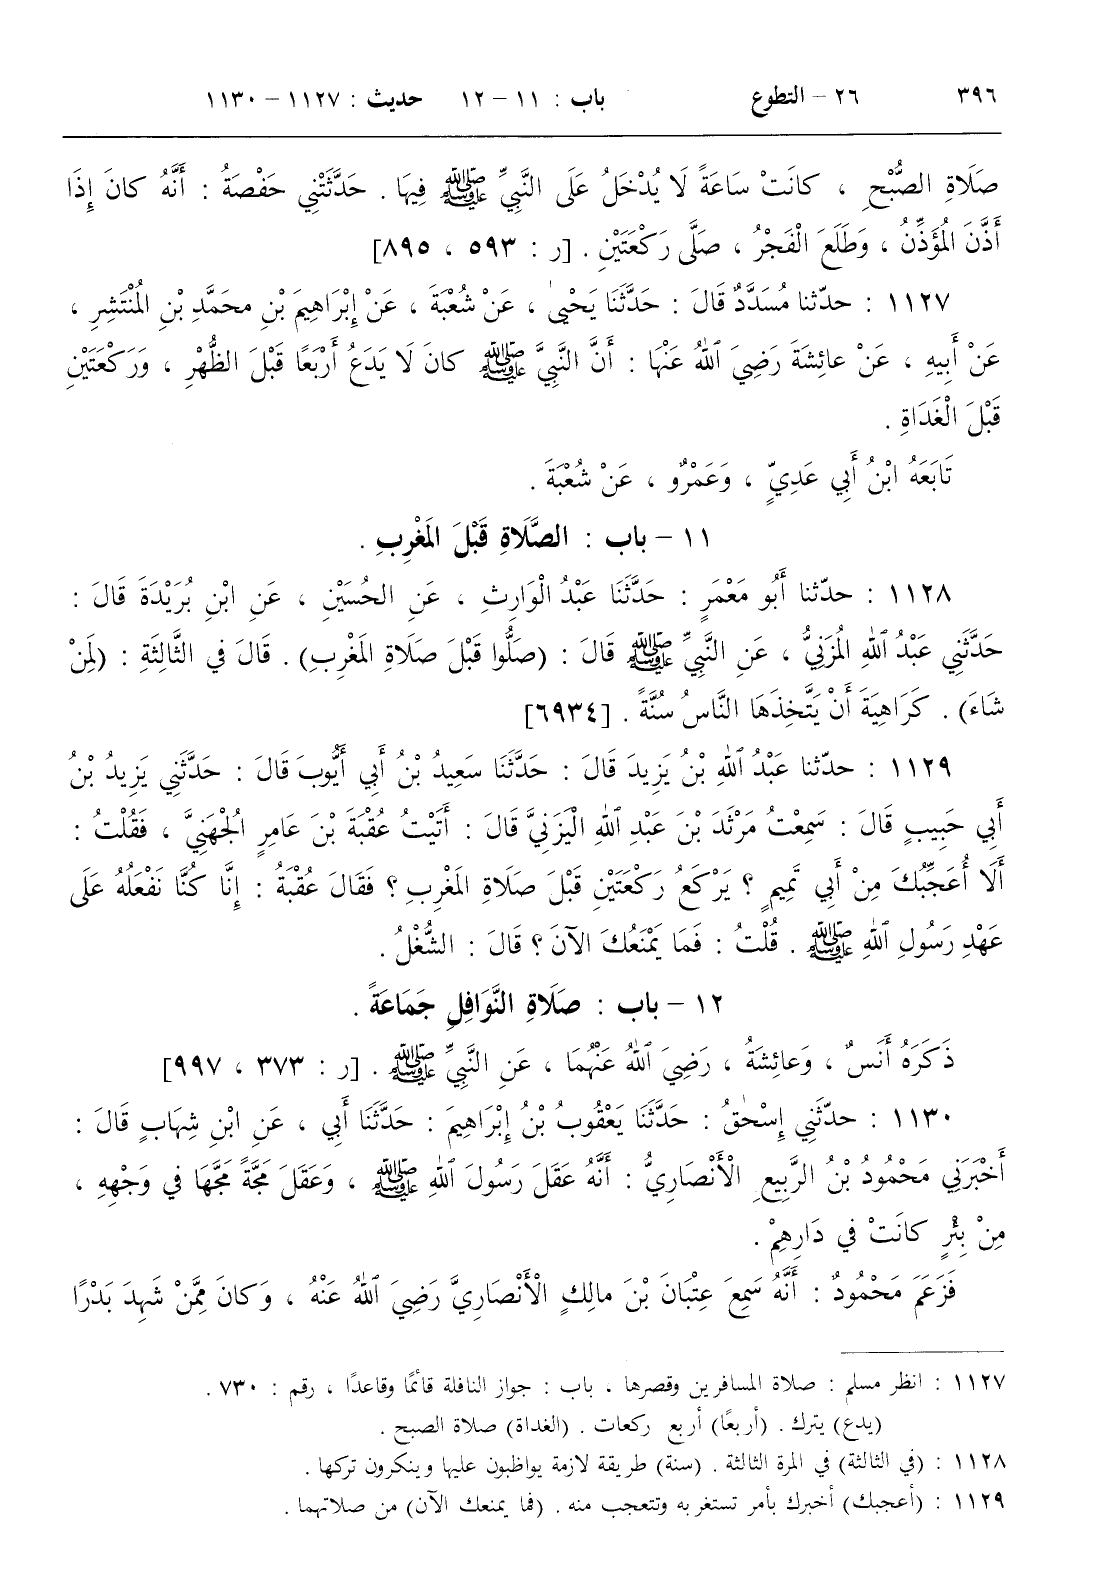 ٣٩٦ ٢٦ – التطوع باب : ١١ – ١٢ حديث : ١١٢٧ – ١١٣٠
صَلَاةِ الصُّبْحِ ، كانَتْ ساعَةً لَا يُدْخَلُ عَلَى النَّبِيِّ ﷺ فِيهَا . حَدَّثَتْنِي حَفْصَةُ : أَنَّهُ كانَ إِذَا
أَذَّنَ الْمُؤَذِّنُ ، وَطَلَعَ الْفَجْرُ ، صَلَّى رَكْعَتَيْنِ . [ر : ٥٩٣ ، ٨٩٥]
١١٢٧ : حدّثنا مُسَدَّدٌ قَالَ : حَدَّثَنَا يَحْيىٰ ، عَنْ شُعْبَةَ ، عَنْ إِبْرَاهِيمَ بْنِ محمَّدِ بْنِ الْمُنْتَشِرِ ،
عَنْ أَبِيهِ ، عَنْ عائِشَةَ رَضِيَ ٱللهُ عَنْهَا : أَنَّ النَّبِيَّ ﷺ كانَ لَا يَدَعُ أَرْبَعًا قَبْلَ الظُّهْرِ ، وَرَكْعَتَيْنِ
قَبْلَ الْغَدَاةِ .
تَابَعَهُ ابْنُ أَبِي عَدِيٍّ ، وَعَمْرٌو ، عَنْ شُعْبَةَ .
١١ – باب : الصَّلَاةِ قَبْلَ المَغْرِبِ .
١١٢٨ : حدّثنا أَبُو مَعْمَرٍ : حَدَّثَنَا عَبْدُ الْوَارِثِ ، عَنِ الحُسَيْنِ ، عَنِ ابْنِ بُرَيْدَةَ قَالَ :
حَدَّثَنِي عَبْدُ ٱللهِ المُزَنِيُّ ، عَنِ النَّبِيِّ ﷺ قَالَ : (صَلُّوا قَبْلَ صَلَاةِ المَغْرِبِ) . قَالَ في الثَّالِثَةِ : (لِمَنْ
شَاءَ) . كَرَاهِيَةَ أَنْ يَتَّخِذَهَا النَّاسُ سُنَّةً . [٦٩٣٤]
١١٢٩ : حدّثنا عَبْدُ ٱللهِ بْنُ يَزِيدَ قَالَ : حَدَّثَنَا سَعِيدُ بْنُ أَبِي أَيُّوبَ قَالَ : حَدَّثَنِي يَزِيدُ بْنُ
أَبِي حَبِيبٍ قَالَ : سَمِعْتُ مَرْثَدَ بْنَ عَبْدِ ٱللهِ الْيَزَنِيَّ قَالَ : أَتَيْتُ عُقْبَةَ بْنَ عَامِرٍ الجُهَنِيَّ ، فَقُلْتُ :
أَلَا أُعَجِّبُكَ مِنْ أَبِي تَمِيمٍ ؟ يَرْكَعُ رَكْعَتَيْنِ قَبْلَ صَلَاةِ المَغْرِبِ ؟ فَقَالَ عُقْبَةُ : إِنَّا كُنَّا نَفْعَلُهُ عَلَى
عَهْدِ رَسُولِ ٱللهِ ﷺ . قُلْتُ : فَمَا يَمْنَعُكَ الآنَ ؟ قَالَ : الشُّغْلُ .
١٢ – باب : صَلَاةِ النَّوَافِلِ جَمَاعَةً .
ذَكَرَهُ أَنَسٌ ، وَعائِشَةُ ، رَضِيَ ٱللهُ عَنْهُمَا ، عَنِ النَّبِيِّ ﷺ . [ر : ٣٧٣ ، ٩٩٧]
١١٣٠ : حدّثَنِي إِسْحٰقُ : حَدَّثَنَا يَعْقُوبُ بْنُ إِبْرَاهِيمَ : حَدَّثَنَا أَبِي ، عَنِ ابْنِ شِهَابٍ قَالَ :
أَخْبَرَنِي مَحْمُودُ بْنُ الرَّبِيعِ الْأَنْصَارِيُّ : أَنَّهُ عَقَلَ رَسُولَ ٱللهِ ﷺ ، وَعَقَلَ مَجَّةً مَجَّهَا في وَجْهِهِ ،
مِنْ بِئْرٍ كانَتْ في دَارِهِمْ .
فَزَعَمَ مَحْمُودٌ : أَنَّهُ سَمِعَ عِتْبَانَ بْنَ مالِكٍ الْأَنْصَارِيَّ رَضِيَ ٱللهُ عَنْهُ ، وَكانَ مِمَّنْ شَهِدَ بَدْرًا
١١٢٧ : انظر مسلم : صلاة المسافرين وقصرها ، باب : جواز النافلة قائمًا وقاعدًا ، رقم : ٧٣٠ .
(يدع) يترك . (أربعًا) أربع ركعات . (الغداة) صلاة الصبح .
١١٢٨ : (في الثالثة) في المرة الثالثة . (سنة) طريقة لازمة يواظبون عليها وينكرون تركها .
١١٢٩ : (أعجبك) أخبرك بأمر تستغربه وتتعجب منه . (فما يمنعك الآن) من صلاتهما .